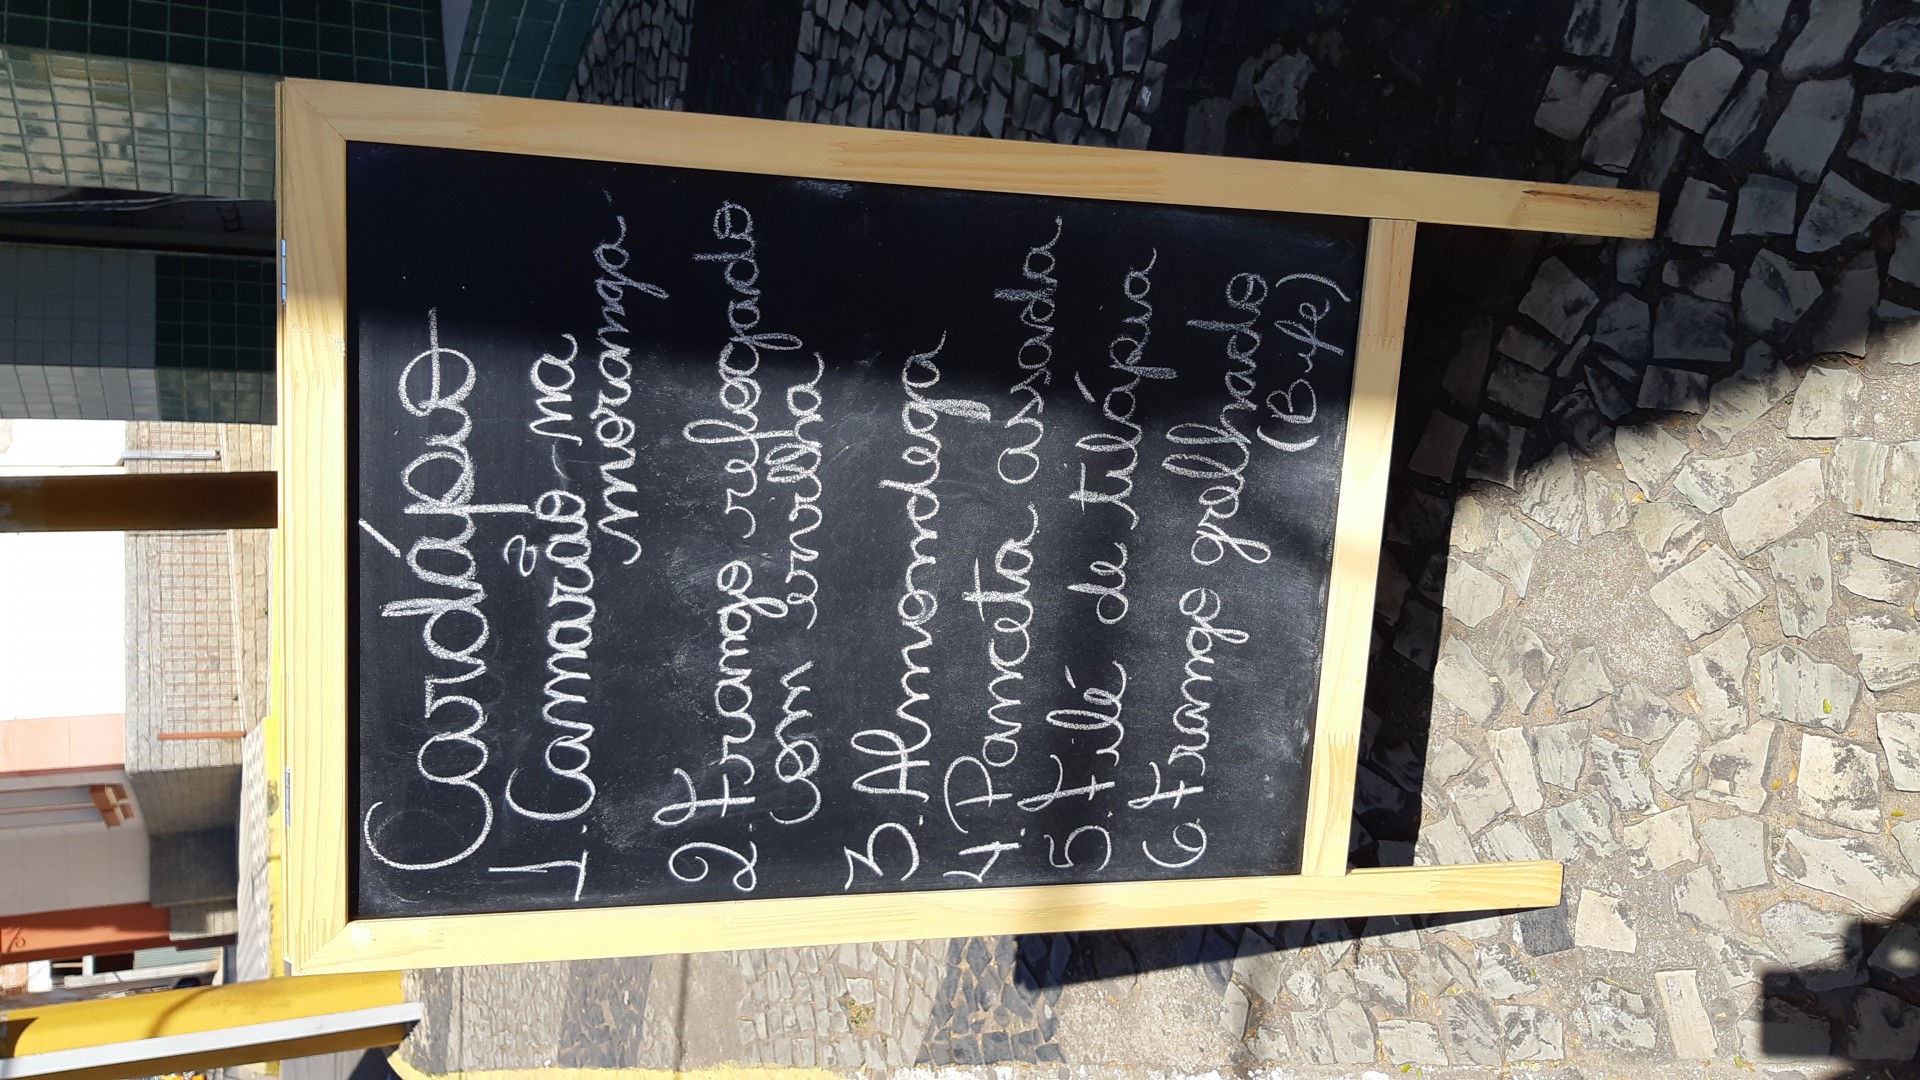 Cardápio
1. Camarão na
moranga
2. Frango refogado
com ervilha
3. Almondega
4. Panceta assada
5. Fillé de tilápia
6 Frango grelhado
(Bufe)